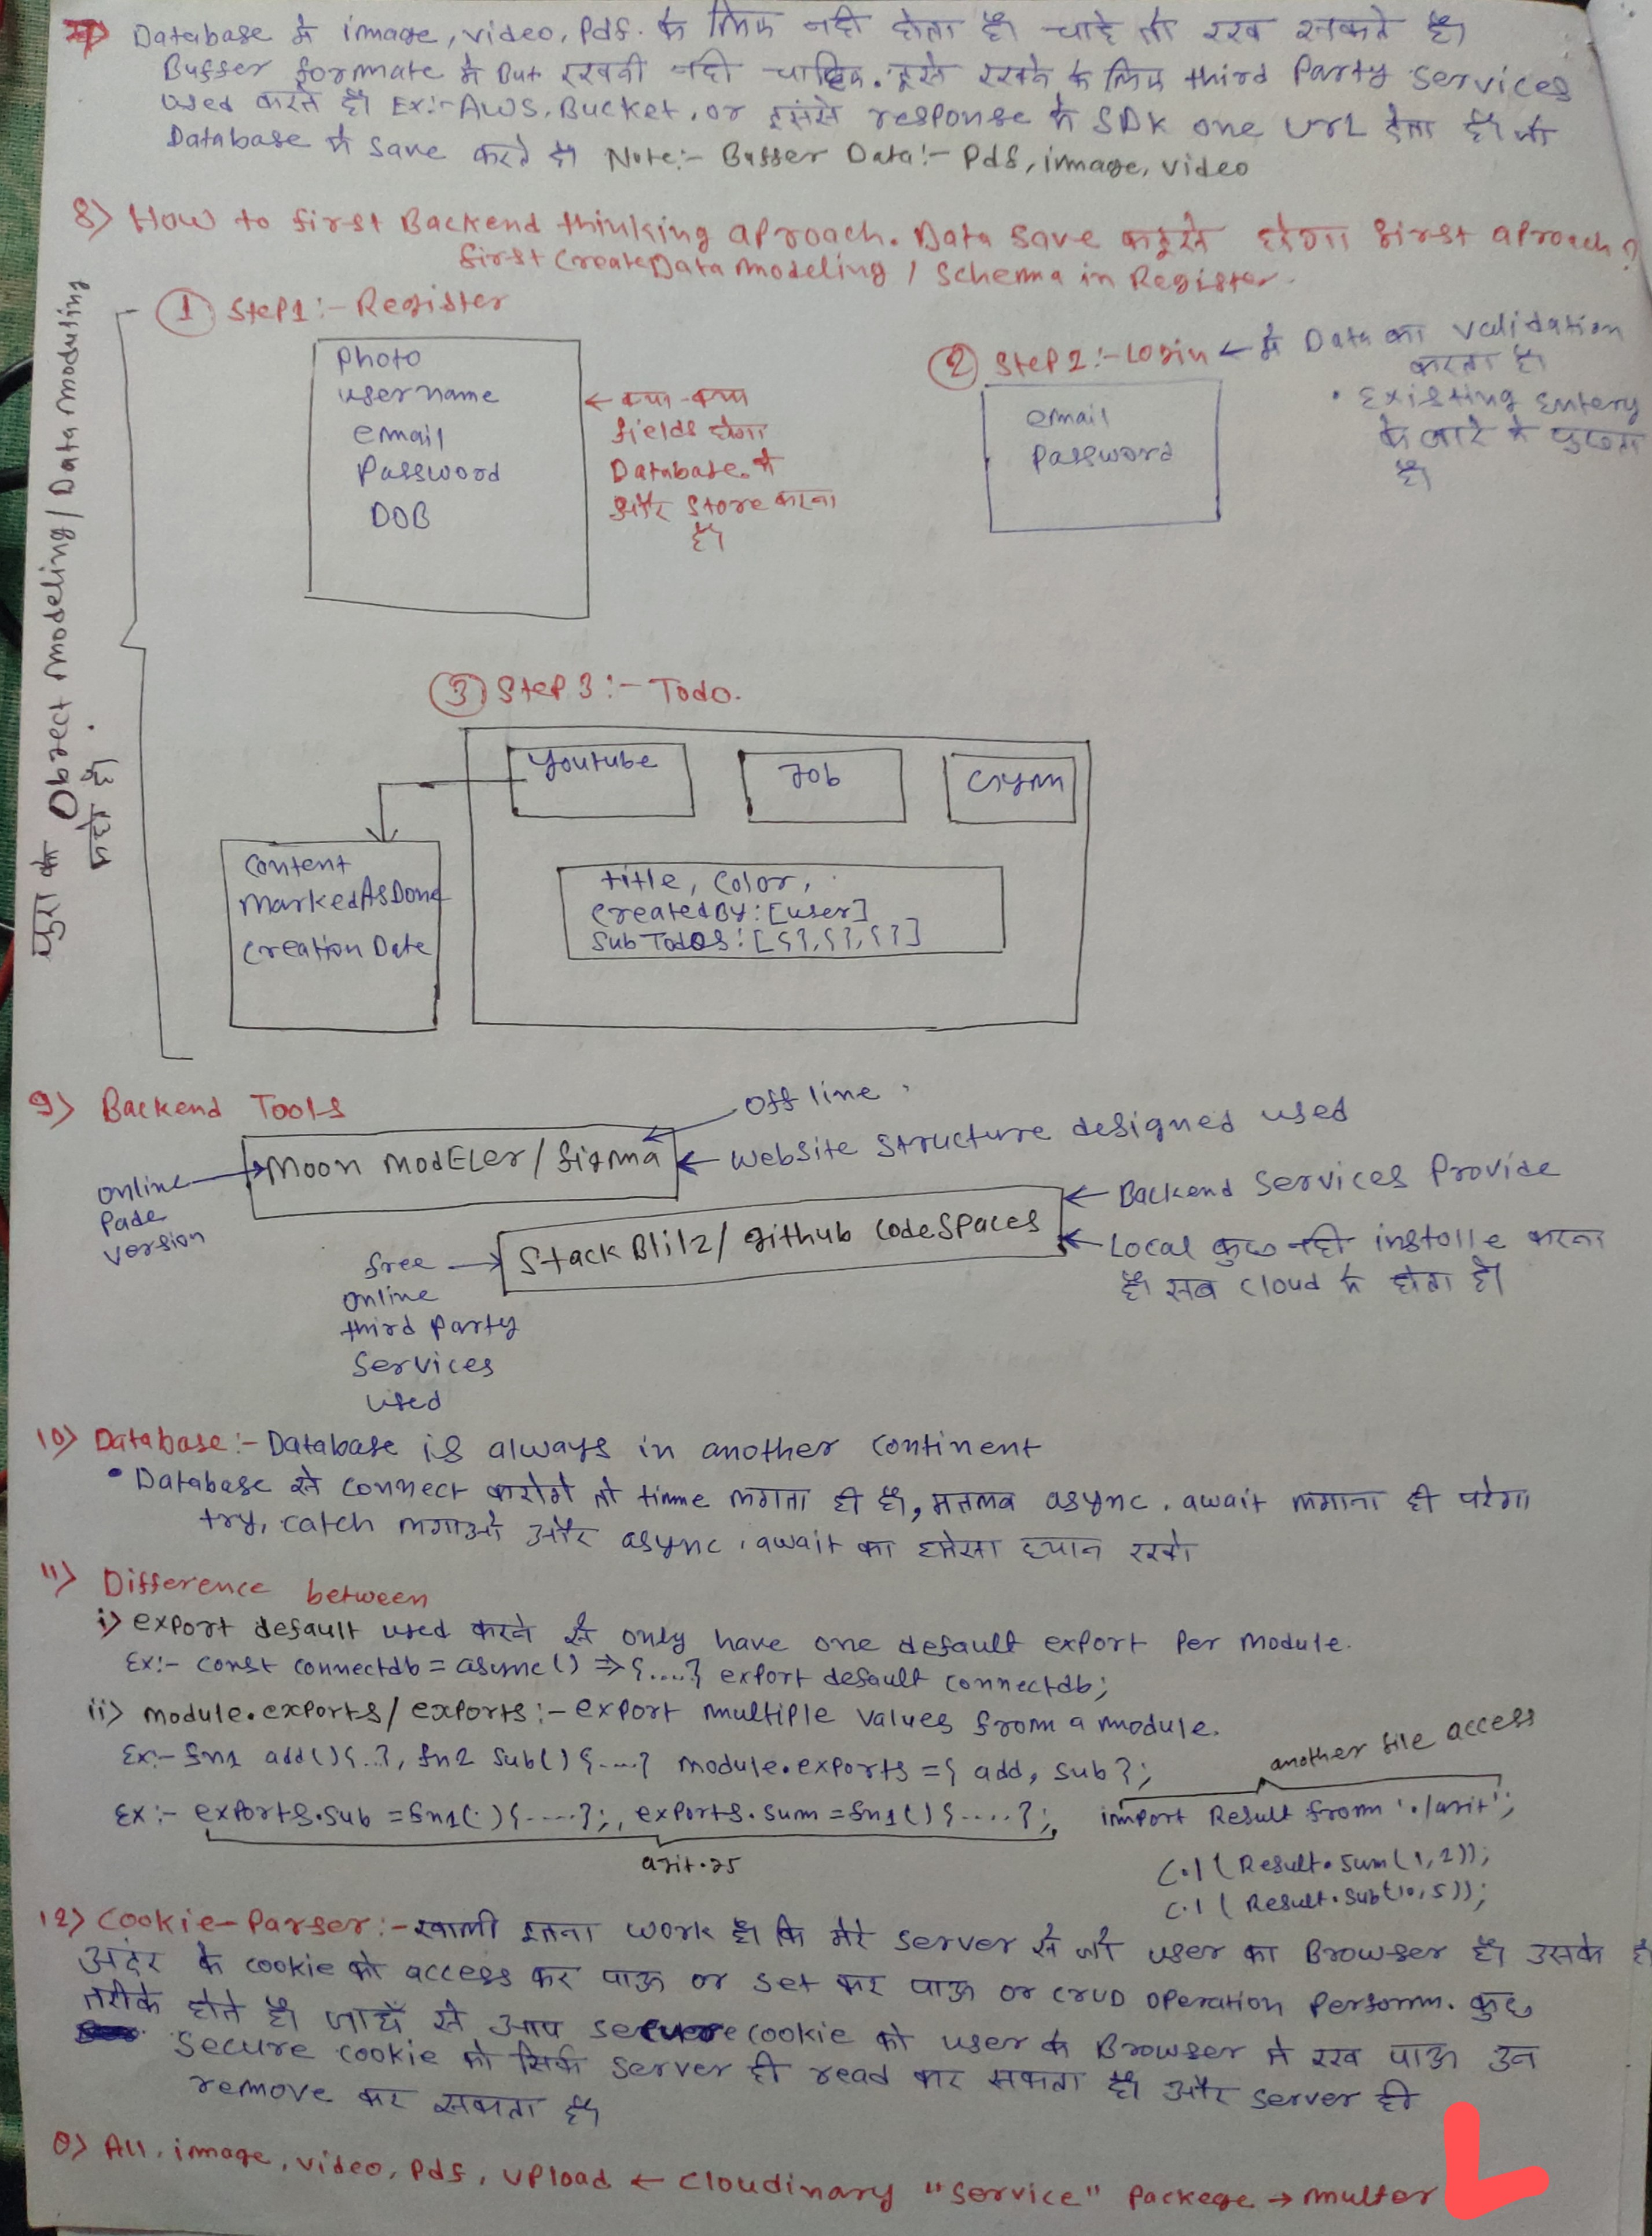 7) Database में image, video, Pdf. के लिए नही होता है। चाहे तो रख सकते है।
Buffer formate में But रखनी नही चाहिए. इसे रखने के लिए third Party services
used करते है। Ex:- AWS, Bucket, or इससे response में SDK one Url देता है। जो
Database में save करते है। Note:- Buffer Data:- Pdf, image, video
8) How to first Backend thinking aproach. Data save कइसे होगा first aproach?
first Create Data modeling / Schema in Register.
पुरा को Object modeling / Data moduling
कहते है।
① Step1:- Register
Photo
username
email
Password
DOB
← क्या-क्या
fields होगा
Database में
और store करना
है।
② Step 2:- Login ← में Data का validation
करता है।
• Existing Entery
के बारे में पुछता
है।
email
Password
③ Step 3:- Todo.
Youtube
Job
Gym
Content
MarkedAsDone
Creation Date
title, color,
CreatedBy: [user]
SubTodos: [{},{},{}]
9) Backend Tools
offline
Moon modELer / figma ← website structure designed used
online
Pade
version
Stack Blitz / github codespaces
← Backend Services Provide
← Local कुछ नही installe करना
है। सब cloud में होता है।
free
online
third party
services
used
10) Database:- Database is always in another continent
• Database से connect करोगे तो time लगता ही है, मतलब async, await लगाना ही परेगा
try, catch लगाओ और async, await का हमेसा ध्यान रखो
11) Difference between
i) export default used करने से only have one default export Per module.
Ex:- const connectdb = async() => {....} export default connectdb;
ii) module.exports / exports:- export multiple values from a module.
Ex:- fn1 add(){..}, fn2 sub(){....} module.exports = { add, sub };
another file access
Ex:- exports.sub = fn1(){.....};, exports.sum = fn1(){.....};, import Result from './arit';
arit.js
C.l ( Result.sum(1,2));
C.l ( Result.sub(10,5));
12) Cookie-Parser:- खाली इतना work है। कि मेरे server से जो user का Browser है। उसके
अंदर के cookie को access कर पाऊ or set कर पाऊ or CRUD operation Perform. कुछ
तरीके होते है। जहाँ से आप secure cookie को user के Browser में रख पाऊ उन
secure cookie को सिर्फ server ही read कर सकता है। और server ही
remove कर सकता है।
0) All, image, video, Pdf, upload ← Cloudinary "Service" Packege → multer